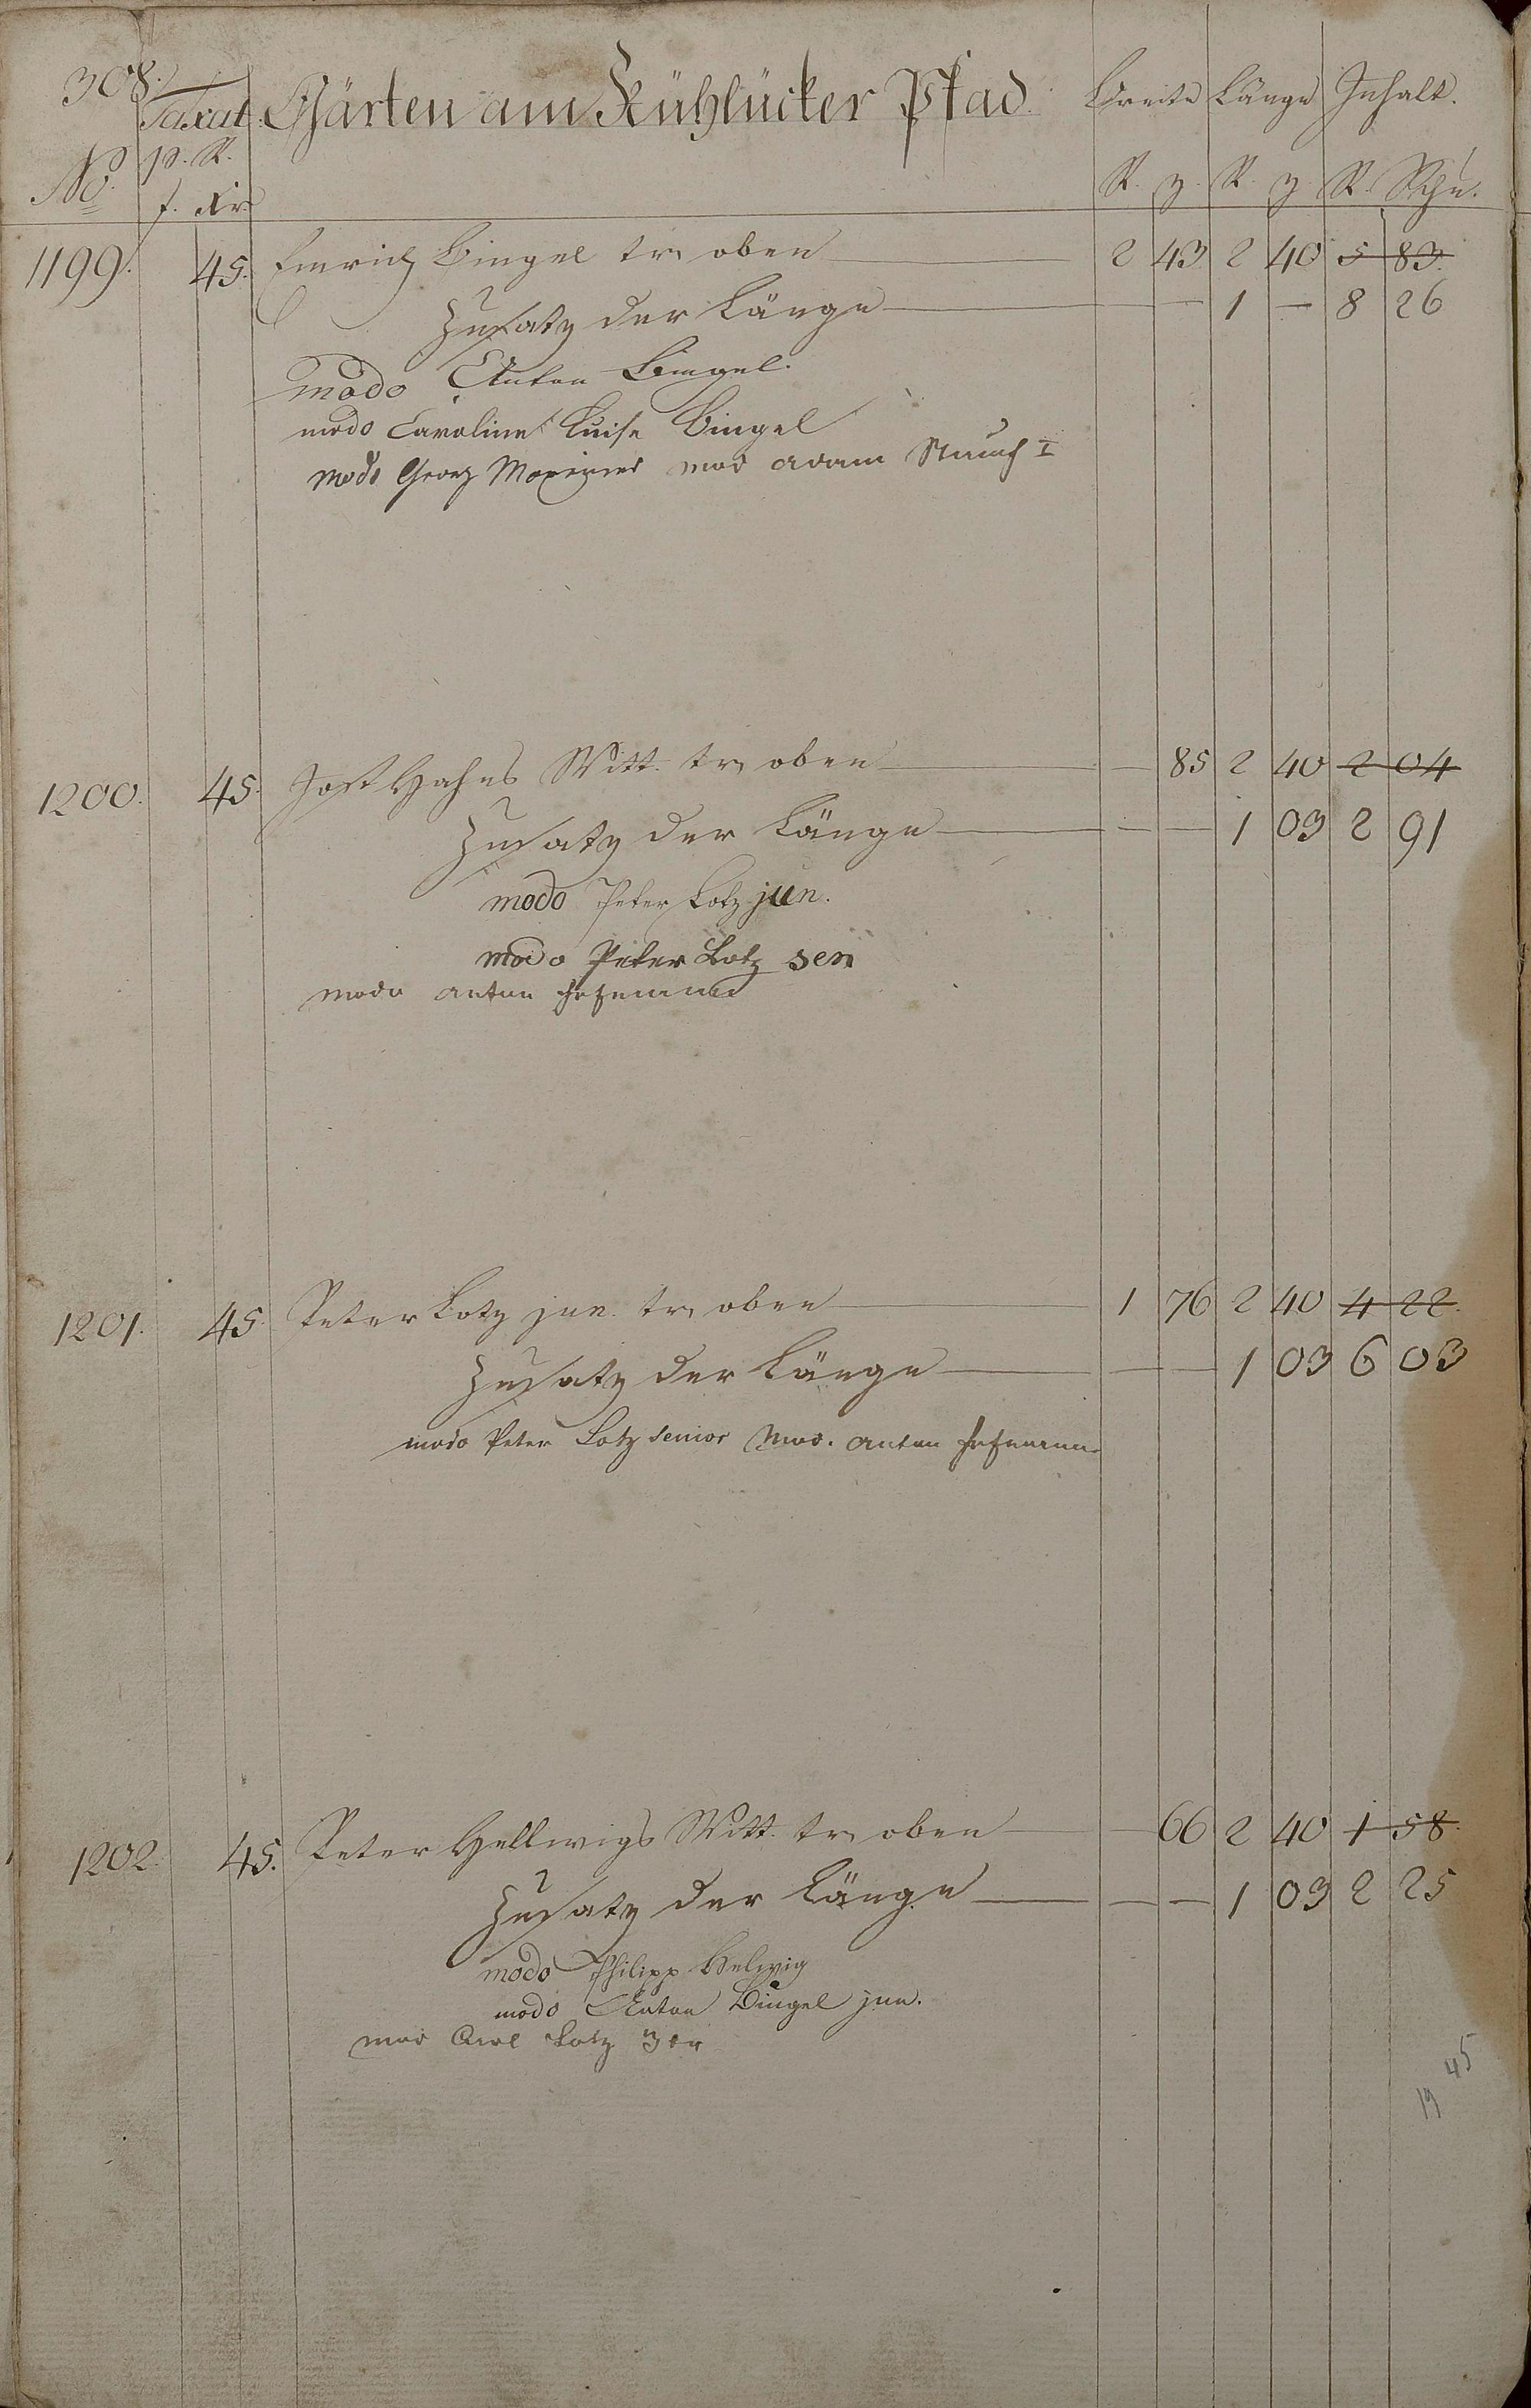 308.
Taxat. Gärten am Kühlücker Pfad. Breite Länge Inhalt.
No. p. R.
f. Kr. R. z. R. z. R. Schu.
1199. 45. Emrich Bingel tr. oben 2 43 2 40 5 83.
Zusatz der Länge — — 1 — 8 26
modo Anton Bingel.
modo Caroline Luise Bingel
modo Georg mod Adam I
1200. 45. Jost Hahns Witt. tr. oben — 85 2 40 2 04
Zusatz der Länge — — 1 03 2 91
modo Peter Lotz jun.
modo Peter Lotz sen
modo Anton Hofmann
1201. 45. Peter Lotz jun. tr. oben 1 76 2 40 4 22.
Zusatz der Länge — — 1 03 6 03
modo Peter Lotz senior Mod. Anton Hofmann
1202. 45. Peter Hellwigs Witt. tr. oben — 66 2 40 1 58.
Zusatz der Länge — — 1 03 2 25
modo Philipp Helwig
modo Anton Bingel jun.
mod Carl Lotz 3er
45
19